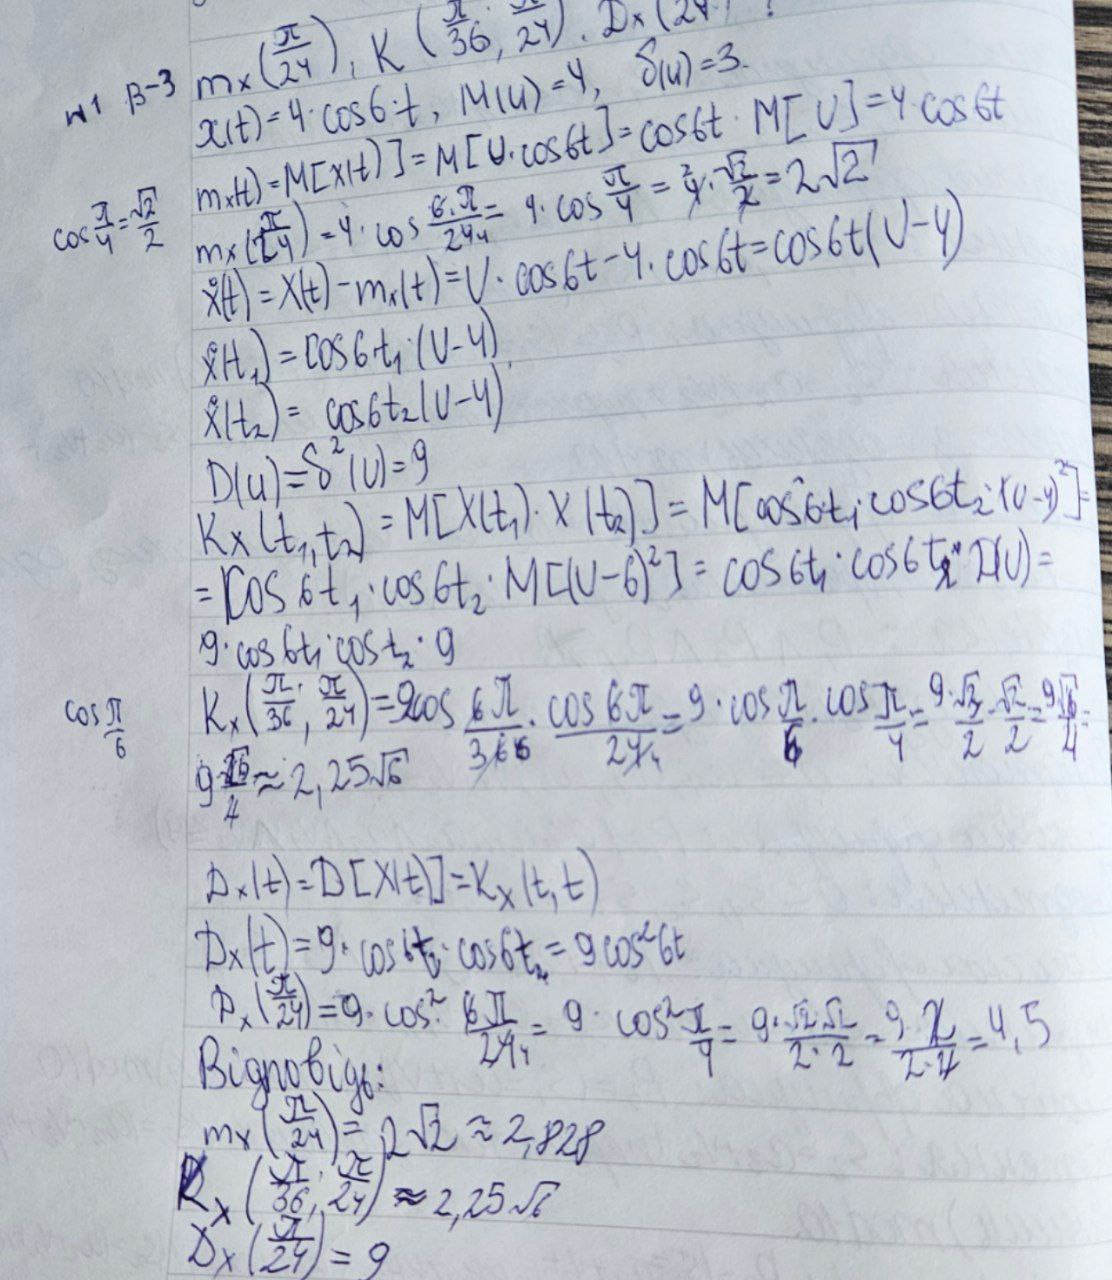 mx(π/24), K(π/36; π/24). Dx(π/24)?
№1 В-3
x(t)=4·cos6·t, M(u)=4, δ(u)=3.
mx(t)=M[X(t)]=M[U·cos6t]=cos6t·M[U]=4·cos6t
cos π/4=√2/2
mx(π/24)=4·cos 6·π/24=4·cos π/4=4·√2/2=2√2
x̊(t)=X(t)-mx(t)=U·cos6t-4·cos6t=cos6t(U-4)
x̊(t₁)=cos6t₁·(U-4)
x̊(t₂)=cos6t₂(U-4)
D(u)=δ²(U)=9
Kx(t₁,t₂)=M[X(t₁)·X(t₂)]=M[cos6t₁·cos6t₂·(U-4)²]=
=cos6t₁·cos6t₂·M[(U-6)²]=cos6t₁·cos6t₂·D(U)=
9·cos6t₁·cost₂·9
cos π/6
Kx(π/36; π/24)=9cos 6π/36·cos 6π/24=9·cos π/6·cos π/4=9·√3/2·√2/2=9√6/4=
9·√6/4≈2,25√6
Dx(t)=D[X(t)]=Kx(t,t)
Dx(t)=9·cos6t·cos6t=9cos²6t
Dx(π/24)=9·cos² 6π/24=9·cos² π/4=9·√2·√2/2·2=9·2/2·2=4,5
Відповідь:
mx(π/24)=2√2≈2,828
Kx(π/36; π/24)≈2,25√6
Dx(π/24)=9